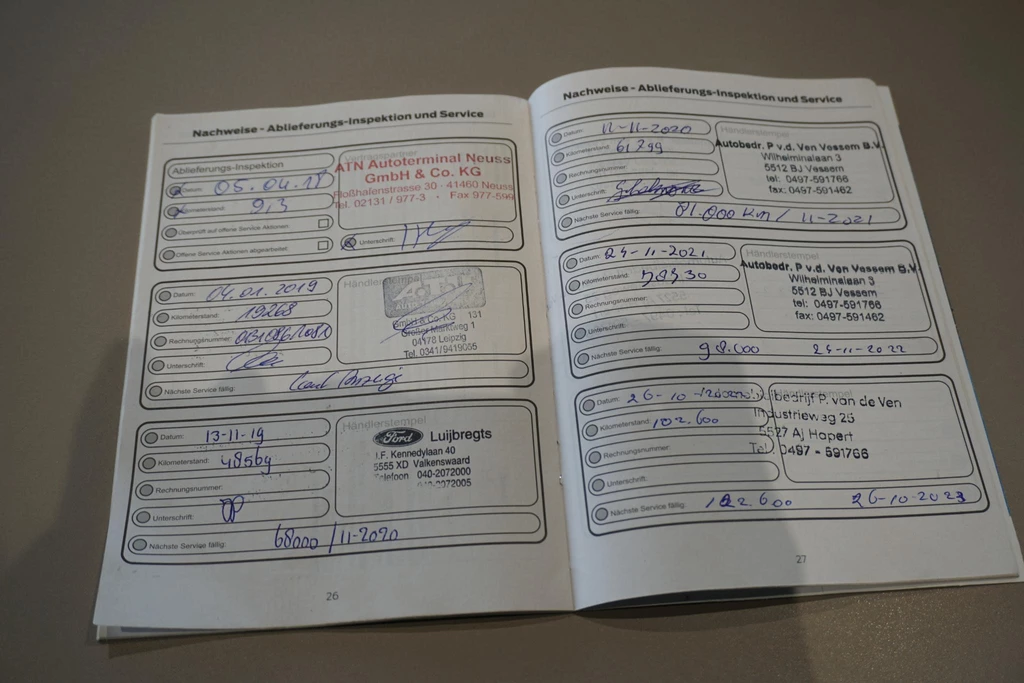 Nachweise - Ablieferungs-Inspektion und Service
Ablieferungs-Inspektion
Datum: 05.04.18
Kilometerstand: 9,3
Überprüft auf offene Service Aktionen
Offene Service Aktionen abgearbeitet:
Vertragspartner
ATN Autoterminal Neuss
GmbH & Co. KG
Floßhafenstrasse 30 - 41460 Neuss
Tel. 02131 / 977-3 · Fax 977-599
Unterschrift:
Datum: 04.01.2019
Kilometerstand: 19268
Rechnungsnummer:
Unterschrift:
Nächste Service fällig:
Händlerstempel
GmbH & Co. KG 131
Großer Marktweg 1
04178 Leipzig
Tel. 0341/9419055
Datum: 13-11-19
Kilometerstand: 48564
Rechnungsnummer:
Unterschrift:
Nächste Service fällig: 68000 / 11-2020
Händlerstempel
Ford Luijbregts
J.F. Kennedylaan 40
5555 XD Valkenswaard
Telefoon 040-2072000
040-2072005
26
Nachweise - Ablieferungs-Inspektion und Service
Datum: 12-11-2020
Kilometerstand: 61799
Rechnungsnummer:
Unterschrift:
Nächste Service fällig: 81.000 km / 11-2021
Händlerstempel
Autobedr. P v.d. Ven Vessem B.V.
Wilhelminalaan 3
5512 BJ Vessem
tel: 0497-591766
fax: 0497-591462
Datum: 24-11-2021
Kilometerstand:
Rechnungsnummer:
Unterschrift:
Nächste Service fällig: 98.000 24-11-2022
Händlerstempel
Autobedr. P v.d. Ven Vessem B.V.
Wilhelminalaan 3
5512 BJ Vessem
tel: 0497-591766
fax: 0497-591462
Datum: 26-10-
Kilometerstand: 102.600
Rechnungsnummer:
Unterschrift:
Nächste Service fällig: 122.600 26-10-2023
Händlerstempel
P. van de Ven
Industrieweg 25
5527 AJ Hapert
Tel. 0497 - 591766
27